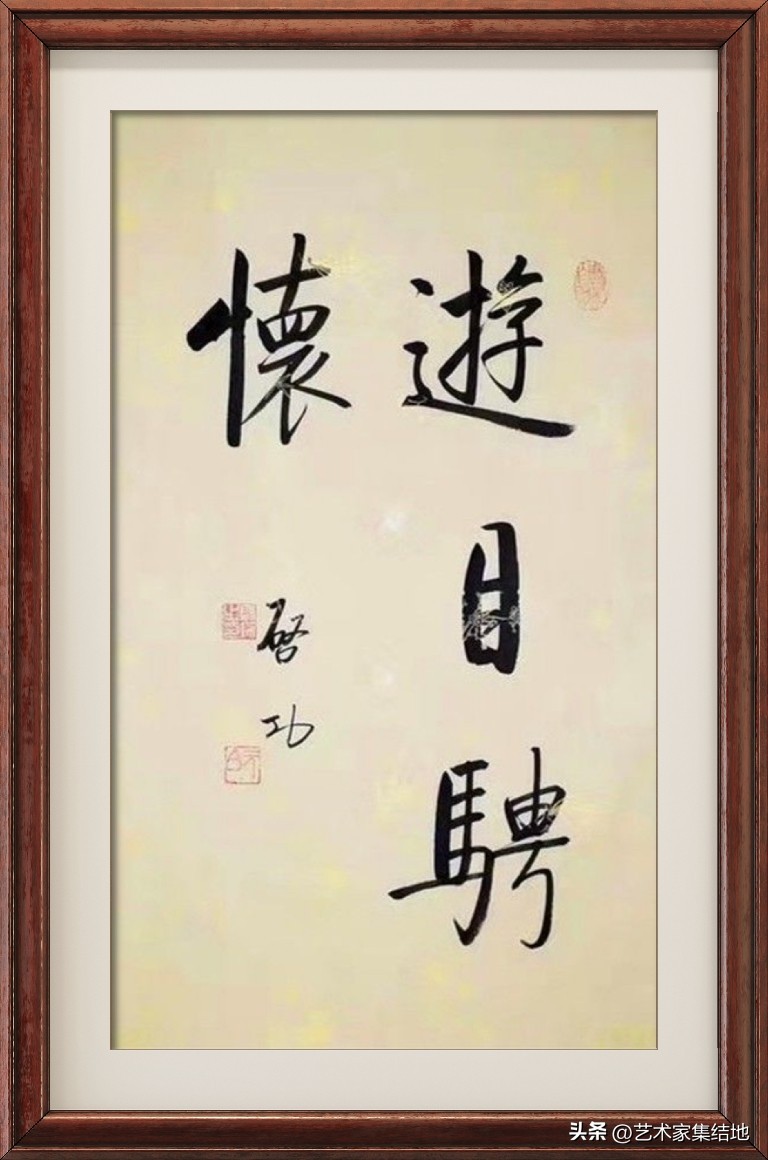 遊目騁
懷
啓功
头条 @艺术家集结地